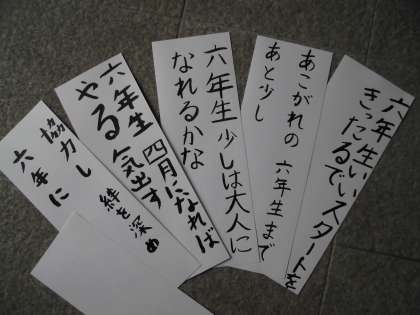 六年生いいスタートを
きったるで
あこがれの 六年生まで
あと少し
六年生少しは大人に
なれるかな
六年生 四月になれば
やる気出す
協力し 絆を深め
六年に